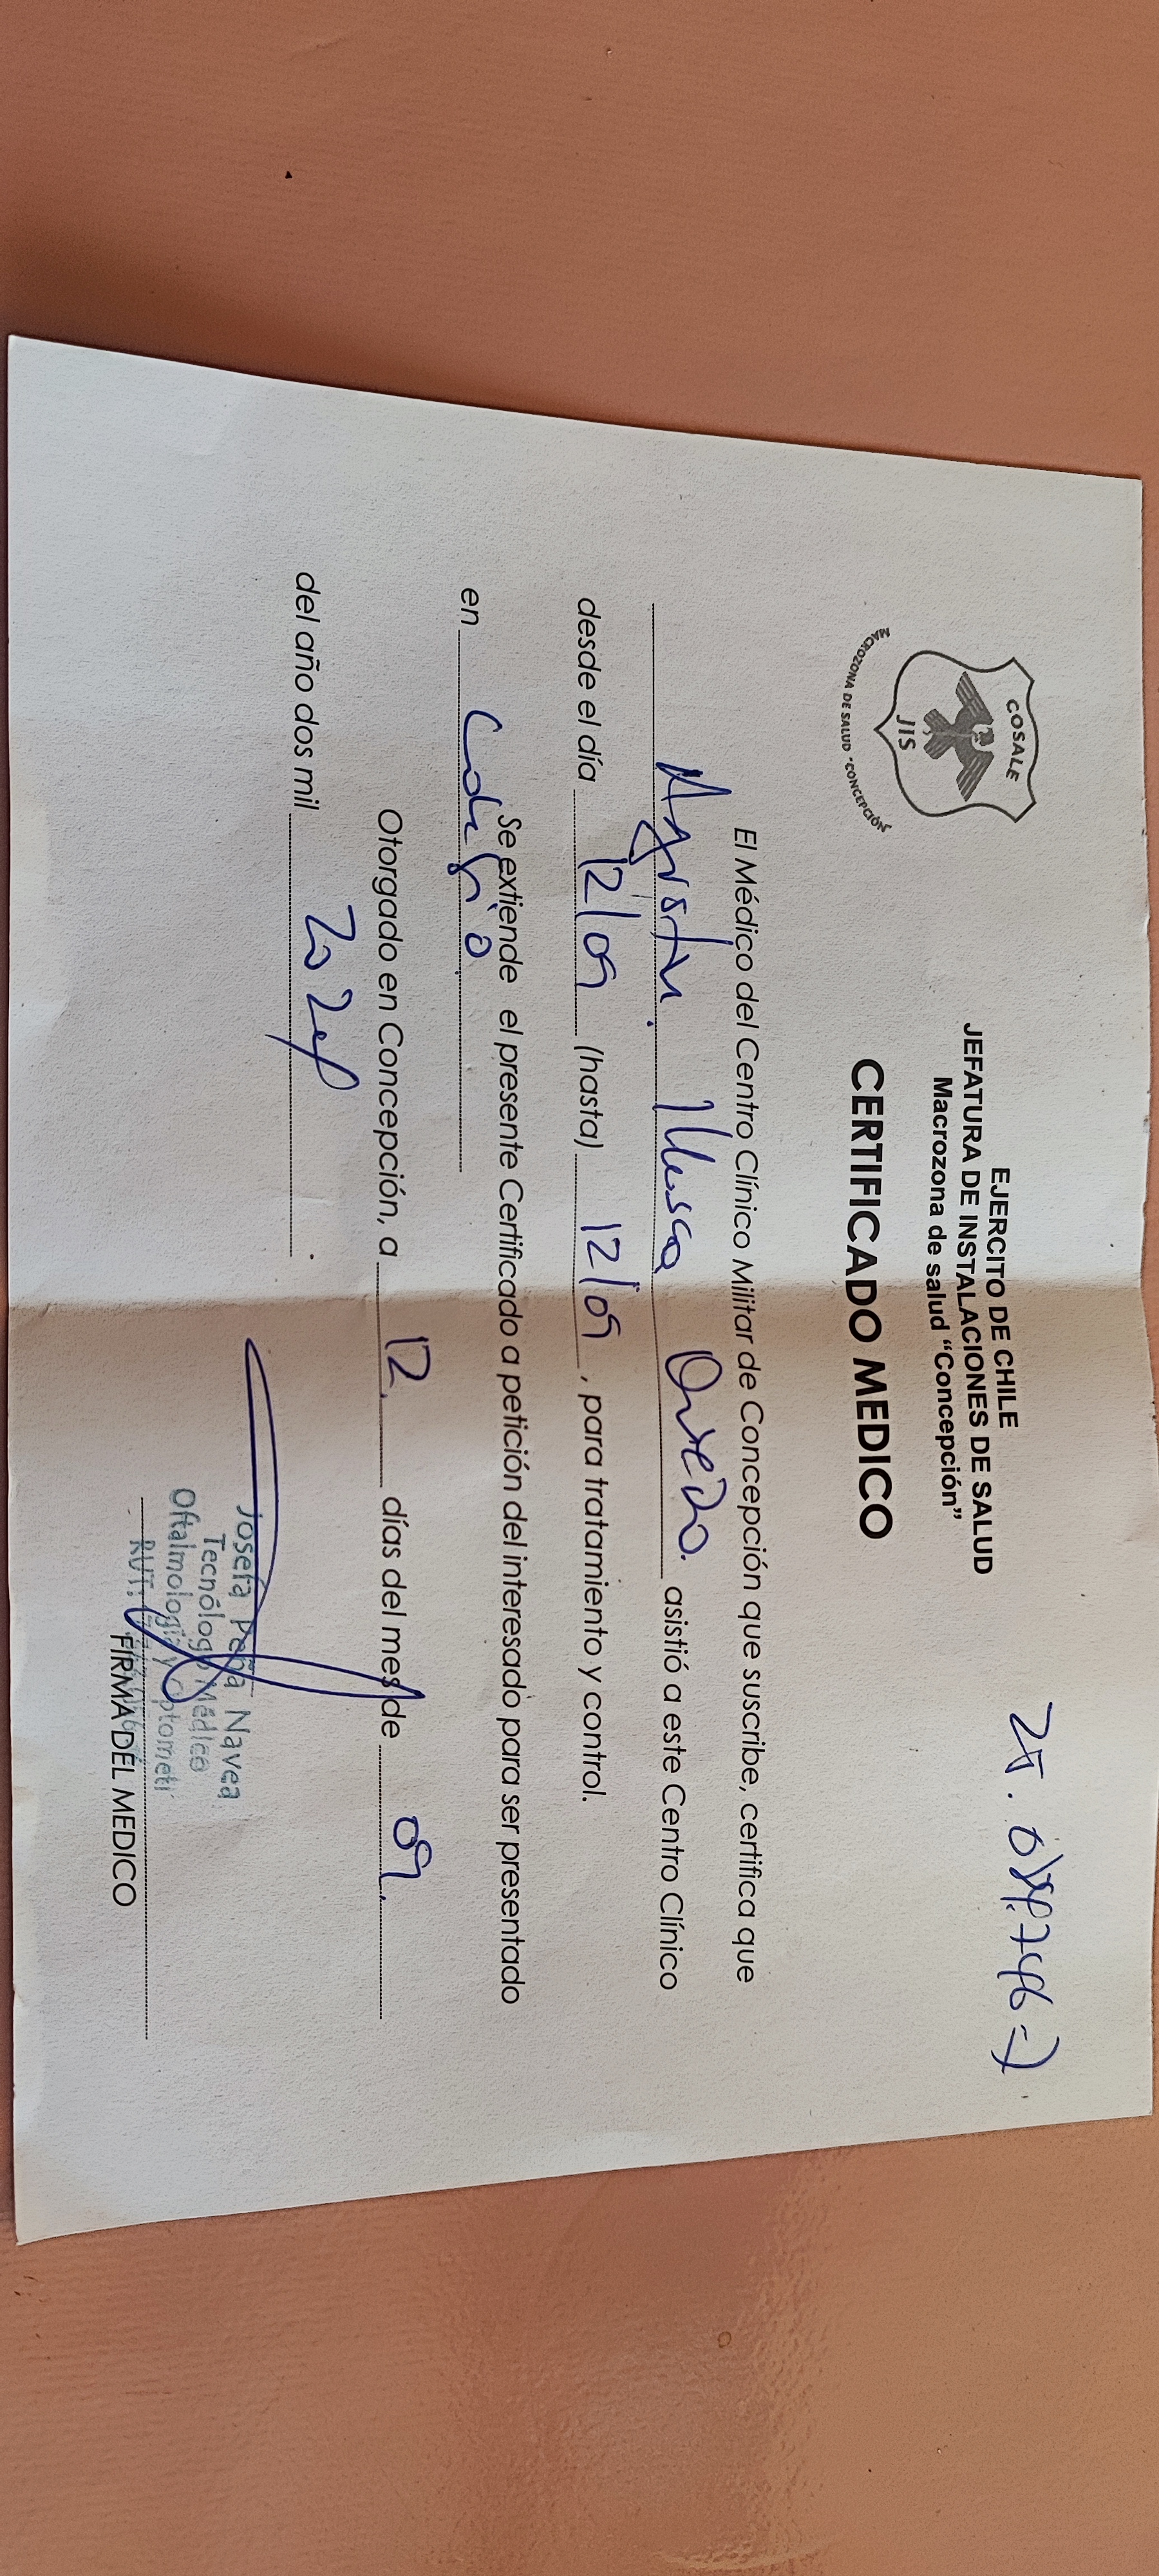 COSALE
JIS
MACROZONA DE SALUD -CONCEPCIÓN
EJERCITO DE CHILE
JEFATURA DE INSTALACIONES DE SALUD
Macrozona de salud “Concepción”
CERTIFICADO MEDICO
El Médico del Centro Clínico Militar de Concepción que suscribe, certifica que
Agustin asistió a este Centro Clínico
desde el día 12/09 (hasta) 12/09, para tratamiento y control.
Se extiende el presente Certificado a petición del interesado para ser presentado
en Colegio.
Otorgado en Concepción, a 12. días del mes de 09.
del año dos mil 2024.
Josefa Peña Navea
Tecnólogo Médico
Oftalmología y Optometr
RUT:
FIRMA DEL MEDICO